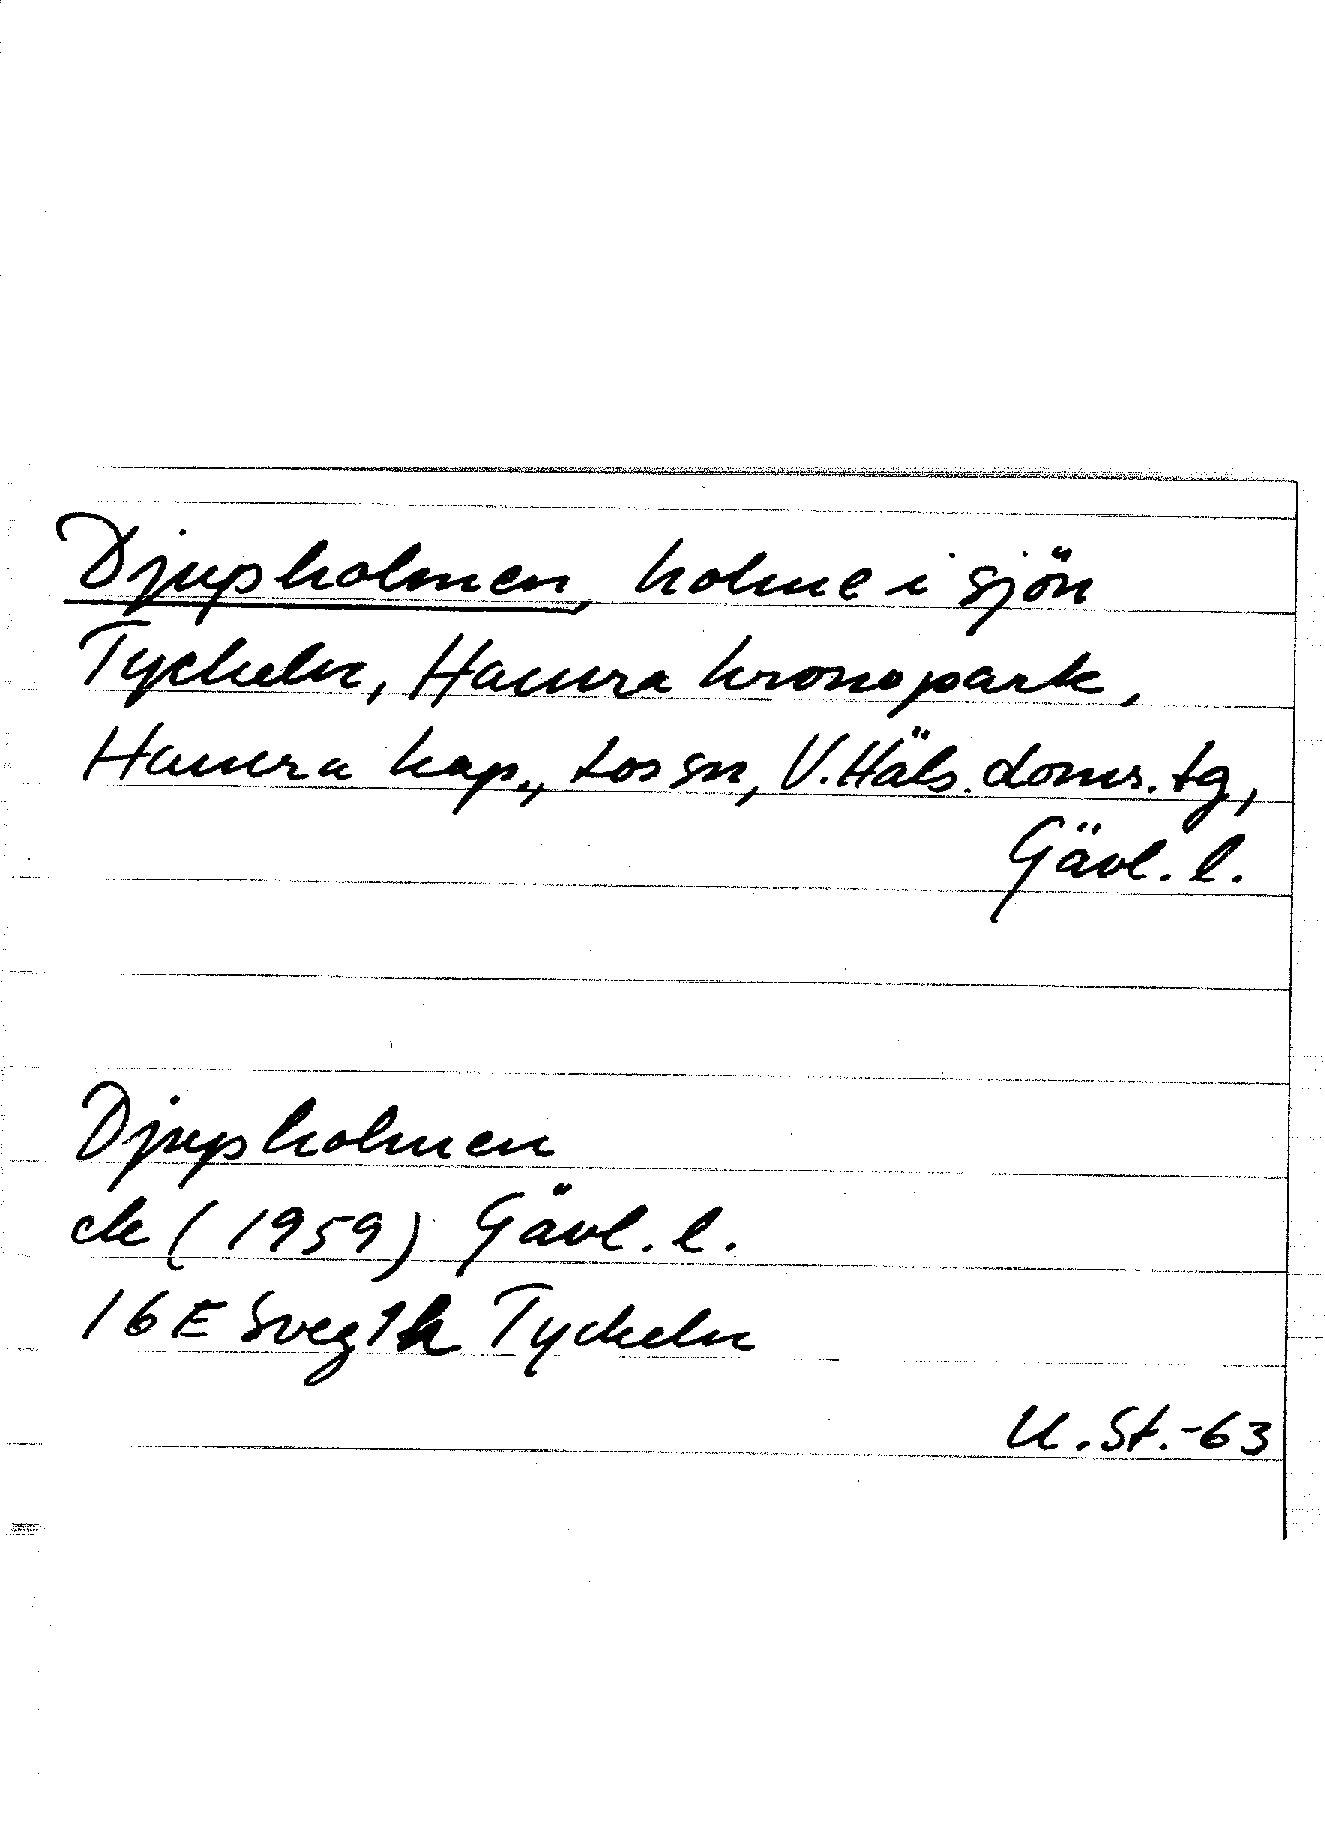 Djupholmen, holme i sjön
Tyckeln, Hamra kronopark,
Hamra kap., Los sn, V. Häls. doms. tg,
Gävl. l.
Djupholmen
ek (1959) Gävl. l.
16E Sveg 1h Tyckeln
U. St. -63